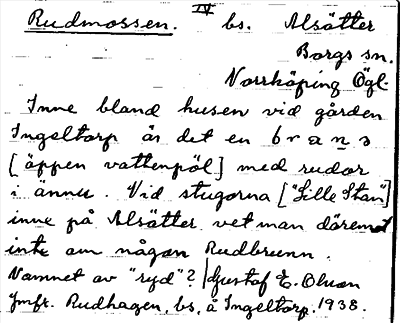 Rudmossen. IV bs. Alsätter
Borgs sn.
Norrköping Ögl.
Inne bland husen vid gården
Ingeltorp är det en brans
[öppen vattenpöl] med rudor
i ännu. Vid stugorna ["Lille Stan"]
inne på Alsätter vet man däremot
inte om någon Rudbrunn.
Namnet av "ryd"? Gustof E. Olsson
Jmfr. Rudhagen, bs, å Ingeltorp. 1938.